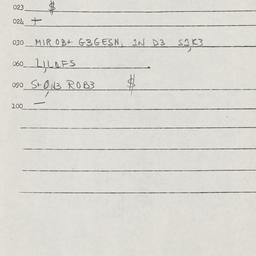 023 $
024 +
030 MIROB+ G3GESN, IN D3 S2K3
060 LILAFS
090 S+ØN3 ROB3 $
100 —